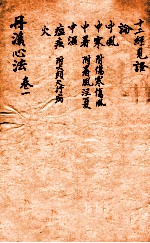 十二經見證
論
中風
中寒 附傷寒傷風
中暑 附暑風注夏
中濕
瘟疫 附大頭天行病
火
丹溪心法 卷一